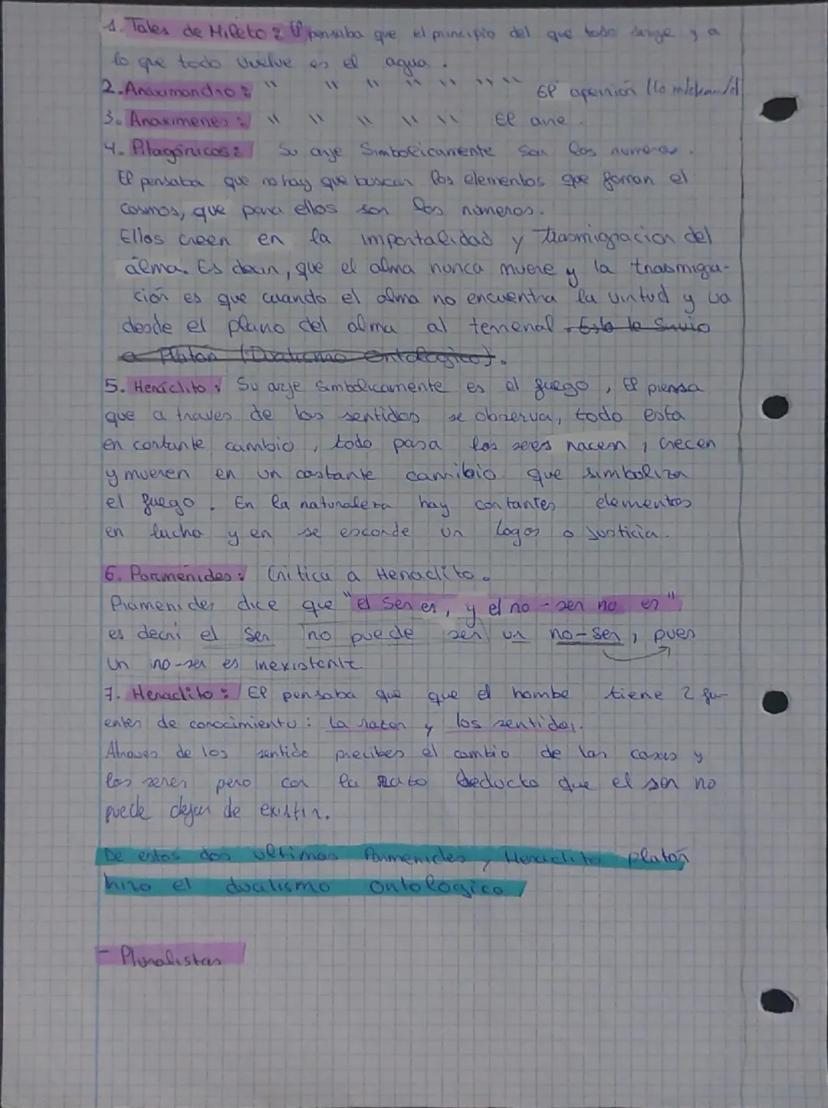 1. Tales de Mileto: El pensaba que el principio del que todo surge y a
lo que todo vuelve es el agua.
2. Anaximandro: " " " " " " " El apeirión (lo
3. Anaximenes: " " " " " El aire.
4. Pitagóricos: Su arje Simbolicamente son los numeros.
El pensaba que no hay que buscar los elementos que forman el
cosmos, que para ellos son los números.
Ellos creen en la importalidad y trasmigracion del
alma. Es decir, que el alma nunca muere y la trasmigra-
ción es que cuando el alma no encuentra la virtud y va
desde el plano del alma al terrenal. Esto le sirvio
a Platon (Dualismo ontologico).
5. Heráclito: Su arje simbolicamente es el fuego, El piensa
que a traves de los sentidos se observa, todo esta
en contante cambio, todo pasa los seres nacen, crecen
y mueren en un costante cambio que simboliza
el fuego. En la naturaleza hay contantes elementos
en lucha y en se esconde un logos o justicia.
6. Parménides: Critica a Heraclito.
Pramenides dice que "el ser es, y el no-ser no es"
es decri el ser no puede ser un no-ser, pues
un no-ser es inexistente
7. Heraclito: El pensaba que que el hombe tiene 2 fu-
entes de conocimiento: la razon y los sentidos.
Atraves de los sentido precibes el cambio de las cosas y
los seres pero con la deducto que el ser no
puede dejar de existir.
De estos dos ultimos Parmenides y Heraclito platón
hizo el dualismo ontologico
- Pluralistas